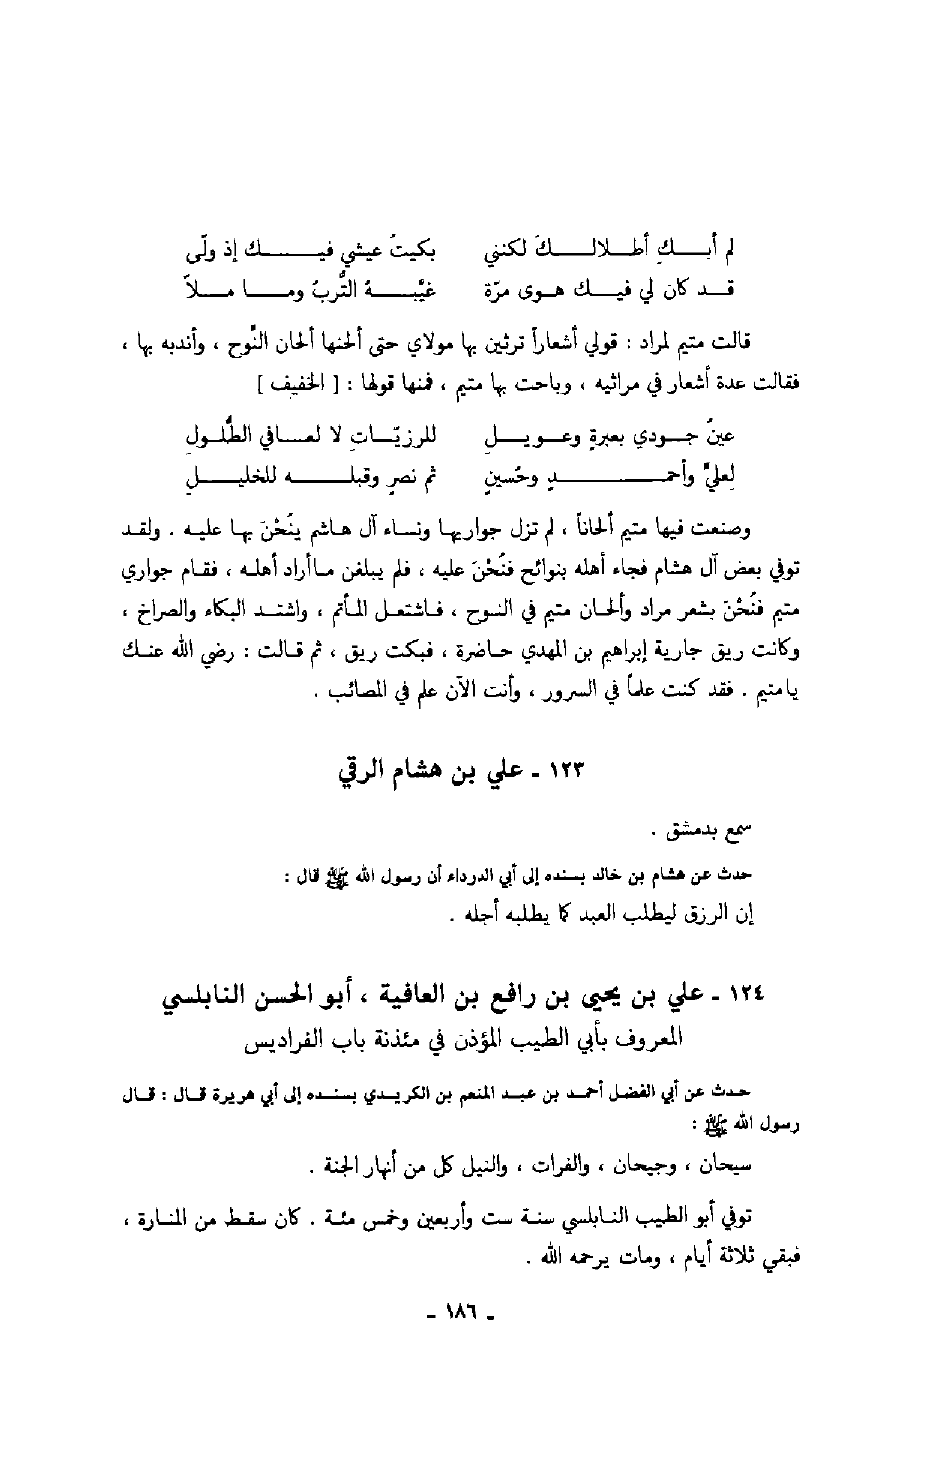 لم أبـك أطـلالـك لكنني    بكيتُ عيشي فيـك إذ ولّى
قـد كان لي فيـك هـوى مرّة    غيّبـه التُّربُ ومـا مـلاّ
قالت متيم لمراد : قولي أشعاراً ترثين بها مولاي حتى ألحنها ألحان النَّوح ، وأندبه بها ،
فقالت عدة أشعار في مراثيه ، وباحت بها متيم ، فمنها قولها : [ الخفيف ]
عينُ جـودي بعبرةٍ وعـويـلِ    للرزيّـاتِ لا لعـافي الطُّلـولِ
لعليٍّ وأحمـدٍ وحُسينٍ    ثم نصرٍ وقبلـه للخليـلِ
وصنعت فيها متيم ألحاناً ، لم تزل جواريها ونساء آل هاشم ينُحْنَ بها عليه . ولقـد
توفي بعض آل هشام فجاء أهله بنوائح فنُحْنَ عليه ، فلم يبلغن ما أراد أهله ، فقام جواري
متيم فنُحْنَ بشعر مراد وألحان متيم في النوح ، فاشتعل المأتم ، واشتد البكاء والصراخ ،
وكانت ريق جارية إبراهيم بن المهدي حاضرة ، فبكت ريق ، ثم قالت : رضي الله عنك
يا متيم . فقد كنت علماً في السرور ، وأنت الآن علم في المصائب .
١٢٣ ـ علي بن هشام الرقي
سمع بدمشق .
حدث عن هشام بن خالد بسنده إلى أبي الدرداء أن رسول الله ﷺ قال :
إن الرزق ليطلب العبد كما يطلبه أجله .
١٢٤ ـ علي بن يحيى بن رافع بن العافية ، أبو الحسن النابلسي
المعروف بأبي الطيب المؤذن في مئذنة باب الفراديس
حدث عن أبي الفضل أحمد بن عبد المنعم بن الكريدي بسنده إلى أبي هريرة قال : قال
رسول الله ﷺ :
سيحان ، وجيحان ، والفرات ، والنيل كل من أنهار الجنة .
توفي أبو الطيب النابلسي سنة ست وأربعين وخمس مئة . كان سقط من المنارة ،
فبقي ثلاثة أيام ، ومات يرحمه الله .
ـ ١٨٦ ـ